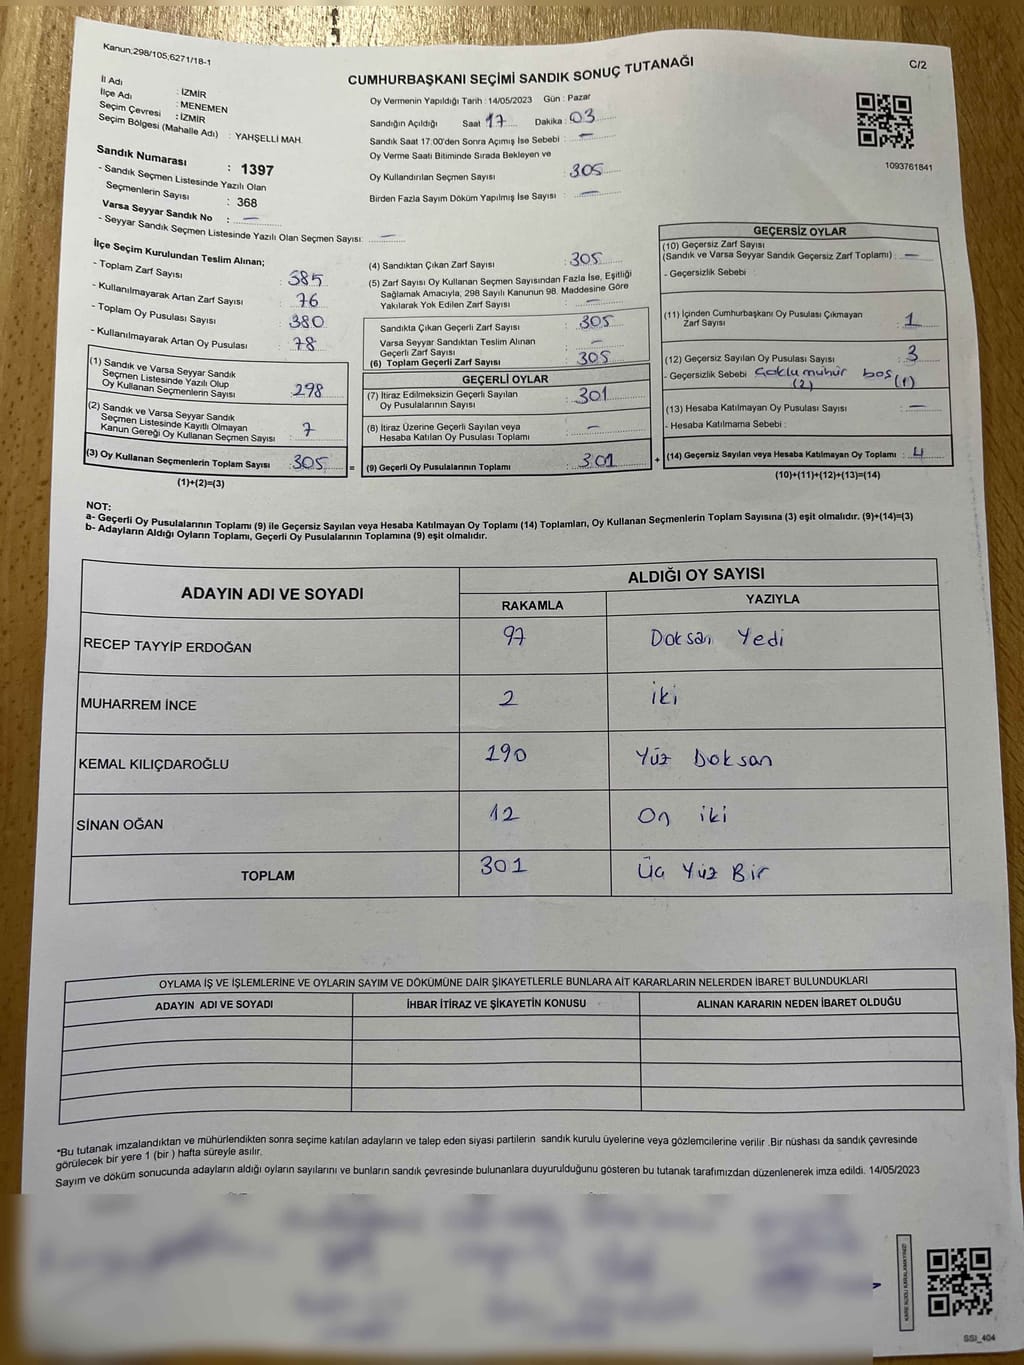 Kanun,298/105,6271/18-1
CUMHURBAŞKANI SEÇİMİ SANDIK SONUÇ TUTANAĞI
C/2
İl Adı : İZMİR
İlçe Adı : MENEMEN
Seçim Çevresi : İZMİR
Seçim Bölgesi (Mahalle Adı) : YAHŞELLİ MAH.
Oy Vermenin Yapıldığı Tarih : 14/05/2023 Gün : Pazar
Sandığın Açıldığı Saat 17 Dakika : 03
Sandık Saat 17:00'den Sonra Açımış İse Sebebi : —
Oy Verme Saati Bitiminde Sırada Bekleyen ve
Oy Kullandırılan Seçmen Sayısı 305
Birden Fazla Sayım Döküm Yapılmış İse Sayısı : —
1093761841
Sandık Numarası : 1397
- Sandık Seçmen Listesinde Yazılı Olan
Seçmenlerin Sayısı : 368
Varsa Seyyar Sandık No : —
- Seyyar Sandık Seçmen Listesinde Yazılı Olan Seçmen Sayısı: —
İlçe Seçim Kurulundan Teslim Alınan;
- Toplam Zarf Sayısı : 385
- Kullanılmayarak Artan Zarf Sayısı : 76
- Toplam Oy Pusulası Sayısı : 380
- Kullanılmayarak Artan Oy Pusulası : 78
(1) Sandık ve Varsa Seyyar Sandık
Seçmen Listesinde Yazılı Olup
Oy Kullanan Seçmenlerin Sayısı : 298
(2) Sandık ve Varsa Seyyar Sandık
Seçmen Listesinde Kayıtlı Olmayan
Kanun Gereği Oy Kullanan Seçmen Sayısı : 7
(3) Oy Kullanan Seçmenlerin Toplam Sayısı : 305 =
(1)+(2)=(3)
(4) Sandıktan Çıkan Zarf Sayısı : 305
(5) Zarf Sayısı Oy Kullanan Seçmen Sayısından Fazla İse, Eşitliği
Sağlamak Amacıyla, 298 Sayılı Kanunun 98. Maddesine Göre
Yakılarak Yok Edilen Zarf Sayısı : —
Sandıkta Çıkan Geçerli Zarf Sayısı : 305
Varsa Seyyar Sandıktan Teslim Alınan
Geçerli Zarf Sayısı : —
(6) Toplam Geçerli Zarf Sayısı : 305
GEÇERLİ OYLAR
(7) İtiraz Edilmeksizin Geçerli Sayılan
Oy Pusulalarının Sayısı : 301
(8) İtiraz Üzerine Geçerli Sayılan veya
Hesaba Katılan Oy Pusulası Toplamı : —
(9) Geçerli Oy Pusulalarının Toplamı : 301 +
GEÇERSİZ OYLAR
(10) Geçersiz Zarf Sayısı
(Sandık ve Varsa Seyyar Sandık Geçersiz Zarf Toplamı) : —
- Geçersizlik Sebebi :
(11) İçinden Cumhurbaşkanı Oy Pusulası Çıkmayan
Zarf Sayısı : 1
(12) Geçersiz Sayılan Oy Pusulası Sayısı : 3
- Geçersizlik Sebebi Çoklu mühür boş
(2) (1)
(13) Hesaba Katılmayan Oy Pusulası Sayısı : —
- Hesaba Katılmama Sebebi :
(14) Geçersiz Sayılan veya Hesaba Katılmayan Oy Toplamı : 4
(10)+(11)+(12)+(13)=(14)
NOT:
a- Geçerli Oy Pusulalarının Toplamı (9) ile Geçersiz Sayılan veya Hesaba Katılmayan Oy Toplamı (14) Toplamları, Oy Kullanan Seçmenlerin Toplam Sayısına (3) eşit olmalıdır. (9)+(14)=(3)
b- Adayların Aldığı Oyların Toplamı, Geçerli Oy Pusulalarının Toplamına (9) eşit olmalıdır.
ADAYIN ADI VE SOYADI ALDIĞI OY SAYISI
RAKAMLA YAZIYLA
RECEP TAYYİP ERDOĞAN 97 Doksan Yedi
MUHARREM İNCE 2 iki
KEMAL KILIÇDAROĞLU 190 Yüz Doksan
SİNAN OĞAN 12 On iki
TOPLAM 301 Üç Yüz Bir
OYLAMA İŞ VE İŞLEMLERİNE VE OYLARIN SAYIM VE DÖKÜMÜNE DAİR ŞİKAYETLERLE BUNLARA AİT KARARLARIN NELERDEN İBARET BULUNDUKLARI
ADAYIN ADI VE SOYADI İHBAR İTİRAZ VE ŞİKAYETİN KONUSU ALINAN KARARIN NEDEN İBARET OLDUĞU
*Bu tutanak imzalandıktan ve mühürlendikten sonra seçime katılan adayların ve talep eden siyasi partilerin sandık kurulu üyelerine veya gözlemcilerine verilir .Bir nüshası da sandık çevresinde
görülecek bir yere 1 (bir ) hafta süreyle asılır.
Sayım ve döküm sonucunda adayların aldığı oyların sayılarını ve bunların sandık çevresinde bulunanlara duyurulduğunu gösteren bu tutanak tarafımızdan düzenlenerek imza edildi. 14/05/2023
SSI_404